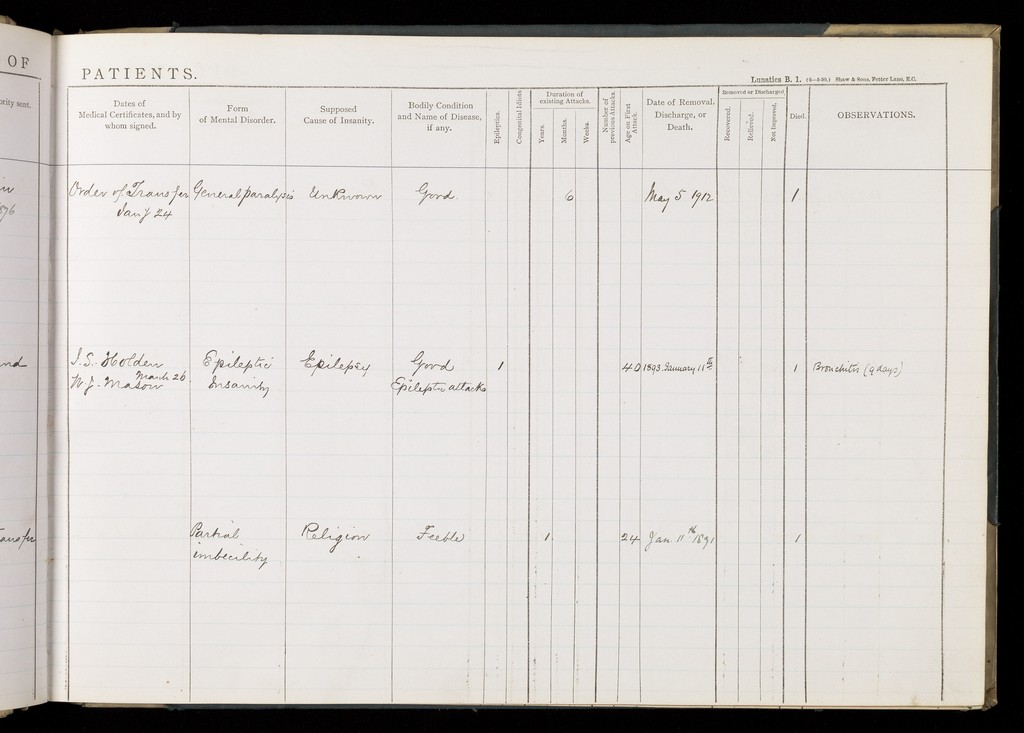 OF
PATIENTS.
Lunatics B. 1. (6—5-90.) Shaw & Sons, Fetter Lane, E.C.
ority sent.
Dates of
Medical Certificates, and by
whom signed.
Form
of Mental Disorder.
Supposed
Cause of Insanity.
Bodily Condition
and Name of Disease,
if any.
Epileptics.
Congenital Idiots
Duration of
existing Attacks.
Years.
Months.
Weeks.
Number of
previous Attacks.
Age on First
Attack.
Date of Removal,
Discharge, or
Death.
Removed or Discharged
Recovered.
Relieved.
Not Improved.
Died.
OBSERVATIONS.
Order of Transfer General paralysis Unknown Good 6 May 5 1912 1
Jany 24
nd J. S. Holden Epileptic Epilepsy Good 1 40 1893 January 11th 1 Bronchitis (9 days)
March 26
W. J. Mason Insanity Epileptic attacks
ansfer Partial Religion Feeble 1 24 Jan 11th 1891 1
imbecility